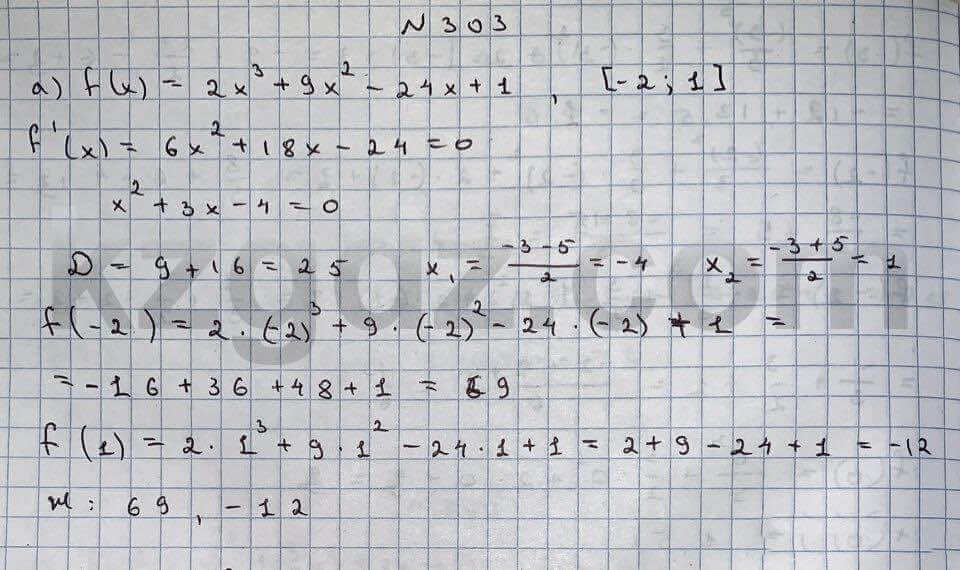 N 303
а) f(x) = 2x³ + 9x² - 24x + 1 , [-2; 1]
f'(x) = 6x² + 18x - 24 = 0
x² + 3x - 4 = 0
D = 9 + 16 = 25 x₁ = (-3-5)/2 = -4 x₂ = (-3+5)/2 = 1
kzgdz.com
f(-2) = 2·(-2)³ + 9·(-2)² - 24·(-2) + 1 =
= -16 + 36 + 48 + 1 = 69
f(1) = 2·1³ + 9·1² - 24·1 + 1 = 2 + 9 - 24 + 1 = -12
ж: 69, -12